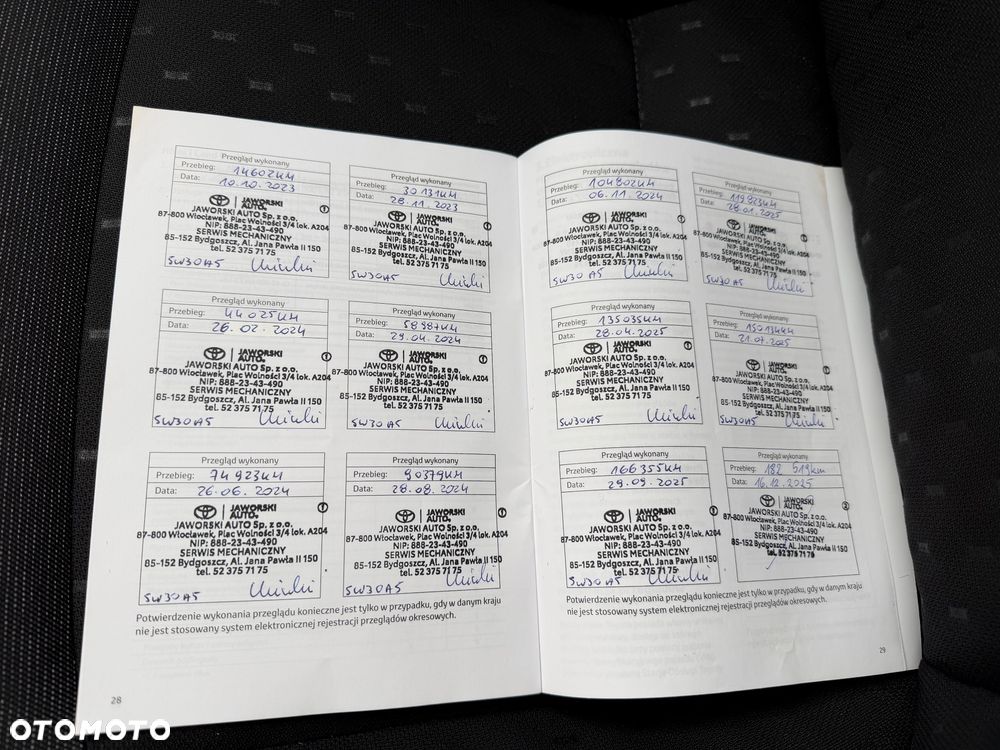 Przegląd wykonany
Przebieg: 14602KM
Data: 10.10.2023
JAWORSKI
AUTO.
JAWORSKI AUTO Sp. z o.o.
87-800 Włocławek, Plac Wolności 3/4 lok. A204
NIP: 888-23-43-490
SERWIS MECHANICZNY
85-152 Bydgoszcz, Al. Jana Pawła II 150
tel. 52 375 71 75
5W30 A5
Przegląd wykonany
Przebieg: 30131KM
Data: 28.11.2023
JAWORSKI
AUTO.
JAWORSKI AUTO Sp. z o.o.
87-800 Włocławek, Plac Wolności 3/4 lok. A204
NIP: 888-23-43-490
SERWIS MECHANICZNY
85-152 Bydgoszcz, Al. Jana Pawła II 150
tel. 52 375 71 75
5W30A5
Przegląd wykonany
Przebieg: 44025KM
Data: 26.02.2024
JAWORSKI
AUTO.
JAWORSKI AUTO Sp. z o.o.
87-800 Włocławek, Plac Wolności 3/4 lok. A204
NIP: 888-23-43-490
SERWIS MECHANICZNY
85-152 Bydgoszcz, Al. Jana Pawła II 150
tel. 52 375 71 75
5W30A5
Przegląd wykonany
Przebieg: 58987KM
Data: 29.04.2024
JAWORSKI
AUTO.
JAWORSKI AUTO Sp. z o.o.
87-800 Włocławek, Plac Wolności 3/4 lok. A204
NIP: 888-23-43-490
SERWIS MECHANICZNY
85-152 Bydgoszcz, Al. Jana Pawła II 150
tel. 52 375 71 75
5W30A5
Przegląd wykonany
Przebieg: 74923KM
Data: 26.06.2024
JAWORSKI
AUTO.
JAWORSKI AUTO Sp. z o.o.
87-800 Włocławek, Plac Wolności 3/4 lok. A204
NIP: 888-23-43-490
SERWIS MECHANICZNY
85-152 Bydgoszcz, Al. Jana Pawła II 150
tel. 52 375 71 75
5W30A5
Przegląd wykonany
Przebieg: 90379KM
Data: 28.08.2024
JAWORSKI
AUTO.
JAWORSKI AUTO Sp. z o.o.
87-800 Włocławek, Plac Wolności 3/4 lok. A204
NIP: 888-23-43-490
SERWIS MECHANICZNY
85-152 Bydgoszcz, Al. Jana Pawła II 150
tel. 52 375 71 75
5W30A5
Potwierdzenie wykonania przeglądu konieczne jest tylko w przypadku, gdy w danym kraju
nie jest stosowany system elektronicznej rejestracji przeglądów okresowych.
28
Przegląd wykonany
Przebieg: 104802KM
Data: 06.11.2024
JAWORSKI
AUTO.
JAWORSKI AUTO Sp. z o.o.
87-800 Włocławek, Plac Wolności 3/4 lok. A204
NIP: 888-23-43-490
SERWIS MECHANICZNY
85-152 Bydgoszcz, Al. Jana Pawła II 150
tel. 52 375 71 75
5W30 A5
Przegląd wykonany
Przebieg: 119823KM
Data: 28.01.2025
JAWORSKI
AUTO.
JAWORSKI AUTO Sp. z o.o.
87-800 Włocławek, Plac Wolności 3/4 lok. A204
NIP: 888-23-43-490
SERWIS MECHANICZNY
85-152 Bydgoszcz, Al. Jana Pawła II 150
tel. 52 375 71 75
5W30A5
Przegląd wykonany
Przebieg: 135035KM
Data: 28.04.2025
JAWORSKI
AUTO.
JAWORSKI AUTO Sp. z o.o.
87-800 Włocławek, Plac Wolności 3/4 lok. A204
NIP: 888-23-43-490
SERWIS MECHANICZNY
85-152 Bydgoszcz, Al. Jana Pawła II 150
tel. 52 375 71 75
5W30A5
Przegląd wykonany
Przebieg: 150134KM
Data: 21.07.2025
JAWORSKI
AUTO.
JAWORSKI AUTO Sp. z o.o.
87-800 Włocławek, Plac Wolności 3/4 lok. A204
NIP: 888-23-43-490
SERWIS MECHANICZNY
85-152 Bydgoszcz, Al. Jana Pawła II 150
tel. 52 375 71 75
5W30A5
Przegląd wykonany
Przebieg: 166355KM
Data: 29.09.2025
JAWORSKI
AUTO.
JAWORSKI AUTO Sp. z o.o.
87-800 Włocławek, Plac Wolności 3/4 lok. A204
NIP: 888-23-43-490
SERWIS MECHANICZNY
85-152 Bydgoszcz, Al. Jana Pawła II 150
tel. 52 375 71 75
5W30A5
Przegląd wykonany
Przebieg: 182 519km
Data: 16.12.2025
JAWORSKI
AUTO.
JAWORSKI AUTO Sp. z o.o.
87-800 Włocławek, Plac Wolności 3/4 lok. A204
NIP: 888-23-43-490
SERWIS MECHANICZNY
85-152 Bydgoszcz, Al. Jana Pawła II 150
tel. 52 375 71 75
Potwierdzenie wykonania przeglądu konieczne jest tylko w przypadku, gdy w danym kraju
nie jest stosowany system elektronicznej rejestracji przeglądów okresowych.
29
OTOMOTO